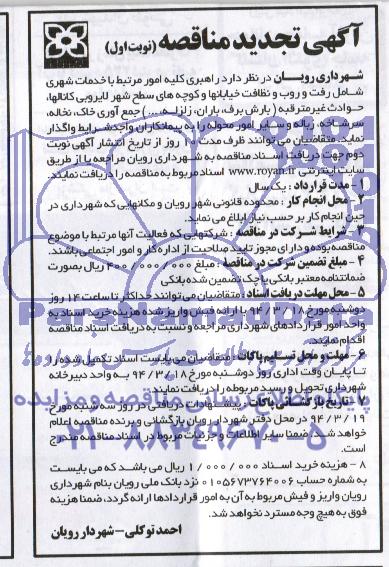 آگهی تجدید مناقصه (نوبت اول)
شهرداری رویان در نظر دارد راهبری کلیه امور مرتبط با خدمات شهری
شامل رفت و روب و نظافت خیابانها و کوچه های سطح شهر لایروبی کانالها،
حوادث غیر مترقبه (بارش برف، باران، زلزله،...) جمع آوری خاک، نخاله،
سرشاخه، زباله و سایر امور محوله را به پیمانکاران واجد شرایط واگذار
نماید. متقاضیان می توانند ظرف مدت ۱۰ روز از تاریخ انتشار آگهی نوبت
دوم جهت دریافت اسناد مناقصه به شهرداری رویان مراجعه یا از طریق
سایت اینترنتی www.royan.ir اسناد مربوط به مناقصه را دریافت نمایند.
۱- مدت قرارداد : یک سال
۲- محل انجام کار : محدوده قانونی شهر رویان و مکانهایی که شهرداری در
حین انجام کار بر حسب نیاز ابلاغ می نماید.
۳- شرایط شرکت در مناقصه : شرکتهایی که فعالیت آنها مرتبط با موضوع
مناقصه بوده و دارای مجوز تایید صلاحیت از اداره کار و امور اجتماعی باشند.
۴- مبلغ تضمین شرکت در مناقصه : مبلغ ۴۰۰/۰۰۰/۰۰۰ ریال بصورت
ضمانتنامه معتبر بانکی یا چک تضمین شده بانکی
۵- محل مهلت دریافت اسناد : متقاضیان می توانند حداکثر تا ساعت ۱۴ روز
دوشنبه مورخ ۹۴/۳/۱۸ با ارائه فیش واریز شده هزینه خرید اسناد به
واحد امور قراردادهای شهرداری مراجعه و نسبت به دریافت اسناد مناقصه
اقدام نمایند.
۶- مهلت و محل تسلیم پاکات : متقاضیان می بایست اسناد تکمیل شده را
تا پایان وقت اداری روز دوشنبه مورخ ۹۴/۳/۱۸ به واحد دبیرخانه
شهرداری تحویل و رسید مربوطه را دریافت نمایند.
۷- تاریخ بازگشائی پاکات : پیشنهادات دریافتی در روز سه شنبه مورخ
۹۴/۳/۱۹ در محل دفتر شهردار رویان بازگشائی و برنده مناقصه اعلام
خواهد شد. ضمنا سایر اطلاعات و جزئیات مربوط در اسناد مناقصه مندرج
است.
۸- هزینه خرید اسناد ۱/۰۰۰/۰۰۰ ریال می باشد که می بایست
به شماره حساب ۰۱۰۵۶۷۳۷۶۴۰۰۶ نزد بانک ملی رویان بنام شهرداری
رویان واریز و فیش مربوط به آن به امور قراردادها ارائه گردد، ضمنا هزینه
فوق به هیچ وجه مسترد نخواهد شد.
احمد توکلی - شهردار رویان
پایگاه اطلاع رسانی مناقصه و مزایده
۰۲۱-۸۸۳۴۹۶۷۰-۵